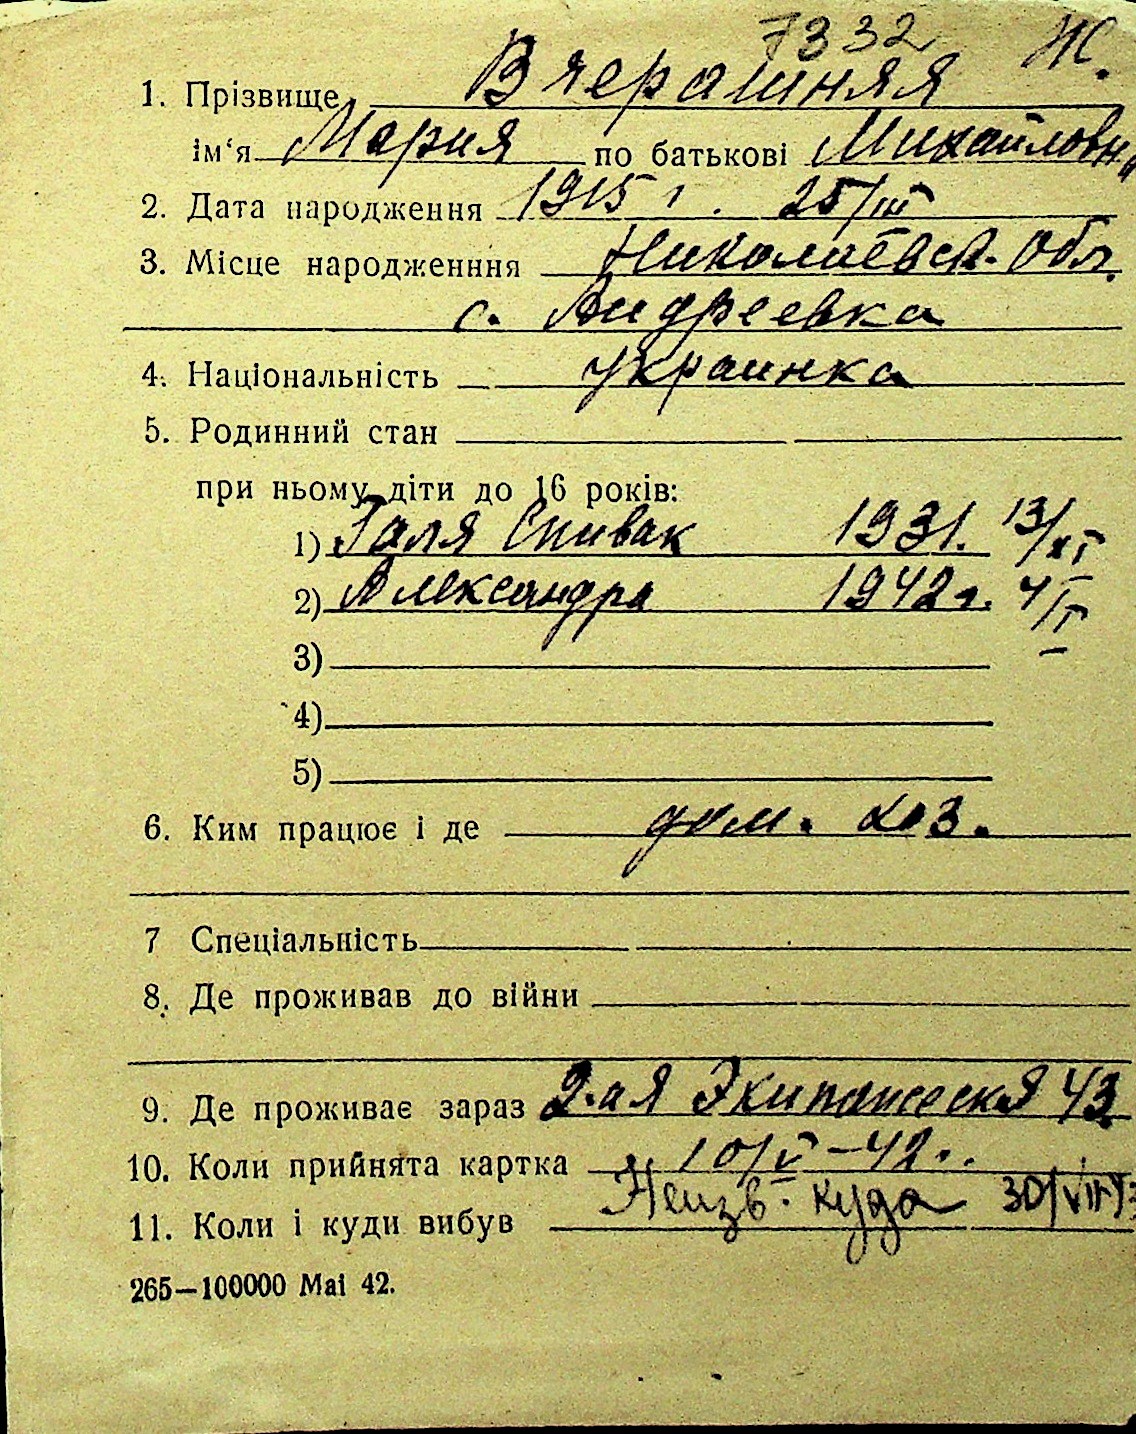 7332 Ж.
1. Прізвище Вчерашняя
ім‘я Мария по батькові Михайловн
2. Дата народження 1915 г. 25/III
3. Місце народженння Николаевск. обл.
с. Андреевка
4. Національність украинка
5. Родинний стан
при ньому діти до 16 років:
1) Галя Спивак 1931. 13/XI
2) Александра 1942 г. 4/I
3)
4)
5)
6. Ким працює і де дом. хоз.
7 Спеціальність
8. Де проживав до війни
9. Де проживає зараз 2-ая Экипажеская 43
10. Коли прийнята картка 10/V–42 г.
11. Коли і куди вибув Неизв. куда 30/VII
265—100000 Mai 42.